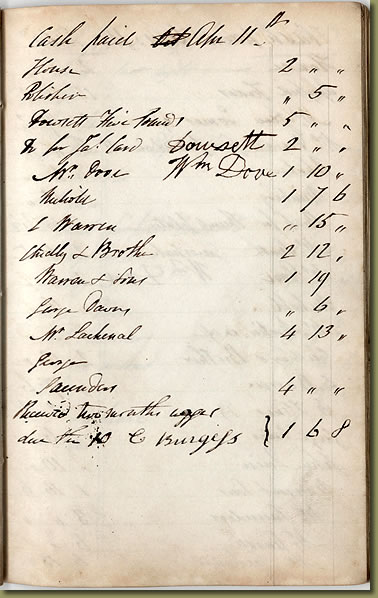 Cash paid Apr 11th
House 2 " "
Polisher " 5 "
Dowsett Five Pounds 5 " "
Do for Jas. Card Dowsett 2 " "
Mr. Dove Wm Dove 1 10 "
Nickold 1 7 6
C Warren " 15 "
Chidley & Brother 2 12 "
Warren & Sons 1 19
George Davis " 6 "
Mr Lachenal 4 13 "
George
Saunders 4 " "
Received two months wages
due the 10 C Burgess } 1 6 8